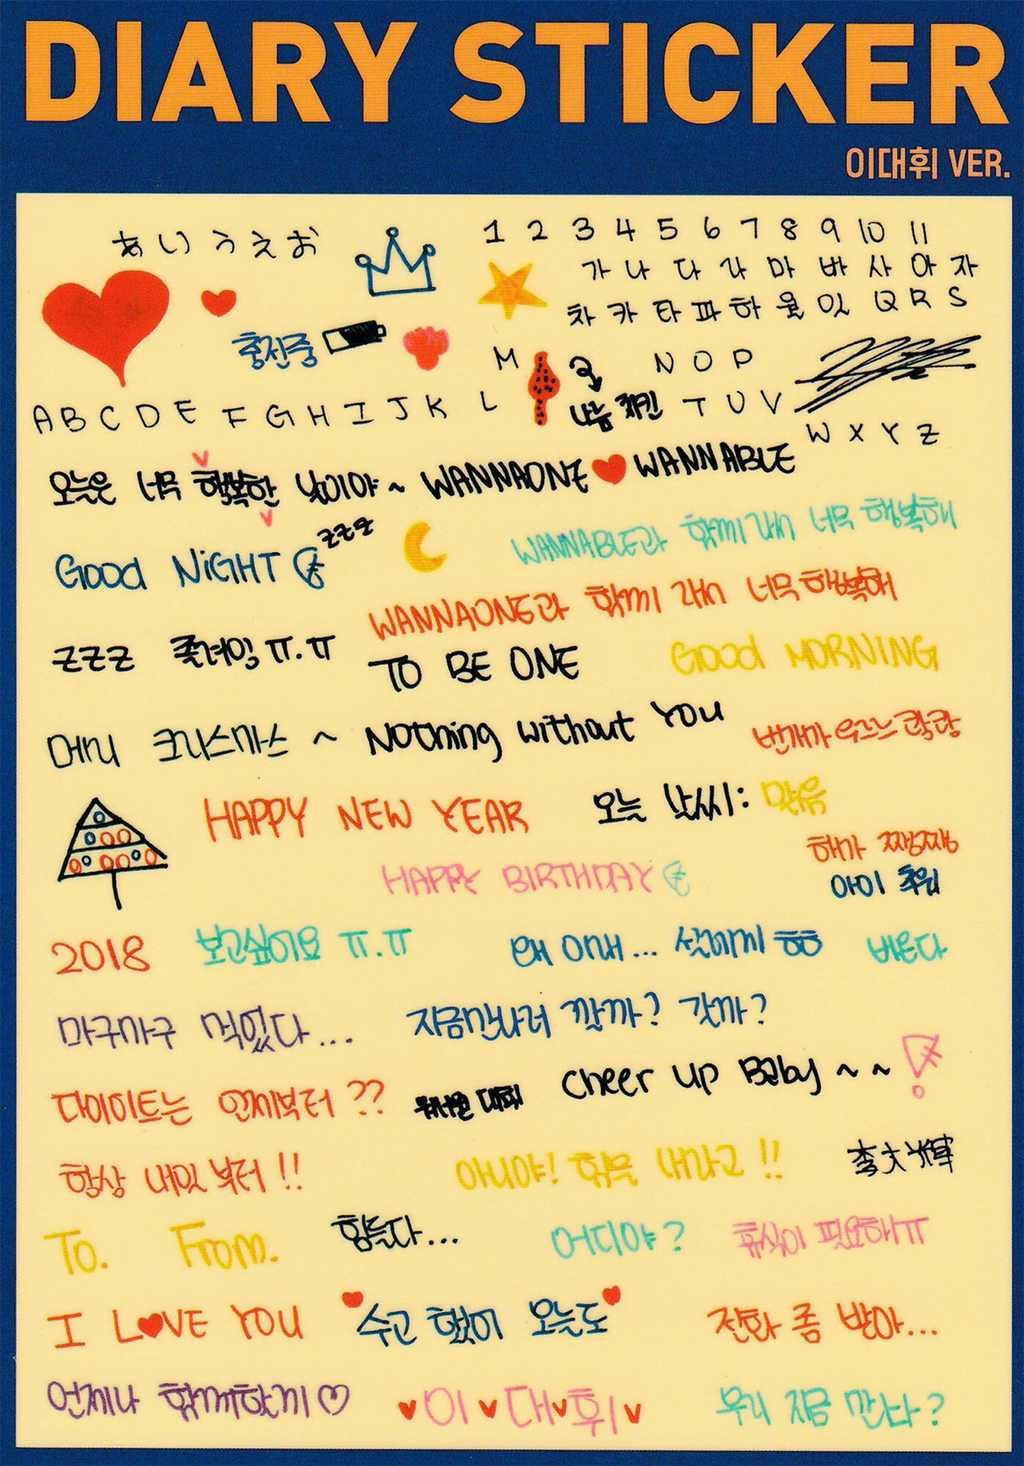 DIARY STICKER
이대휘 VER.
あいうえお
1 2 3 4 5 6 7 8 9 10 11
가 나 다 라 마 바 사 아 자
차 카 타 파 하 Q R S
충전중
M N O P
A B C D E F G H I J K L T U V
W X Y Z
오늘은 너무 행복한 날이야~ WANNAONE WANNABLE
GOOD NIGHT zzz
WANNABLE과 함께 해 너무 행복해
WANNAONE과 함께 해 너무 행복해
zzz 졸려잉 ㅠ.ㅠ
TO BE ONE
GOOD MORNING
메리 크리스마스 ~ Nothing without YOU
번개가 우르르쾅쾅
HAPPY NEW YEAR
오늘 날씨: 맑음
해가 쨍쨍
HAPPY BIRTHDAY
아이 추워
2018 보고싶어요 ㅠ.ㅠ
왜 이래... 설레게 ㅎㅎ
배운다
마구마구 먹었다...
지금만나러 갈까? 갓까?
다이어트는 언제부터 ??
Cheer up Baby ~ ~ !
항상 내일부터 !!
아니야! 힘을 내라고 !!
李大輝
To. From.
힘들다...
어디야?
휴식이 필요해ㅠ
I LOVE YOU
수고 했어 오늘도
전화 좀 받아...
언제나 함께하길♡
이 대 휘
우리 지금 만나?